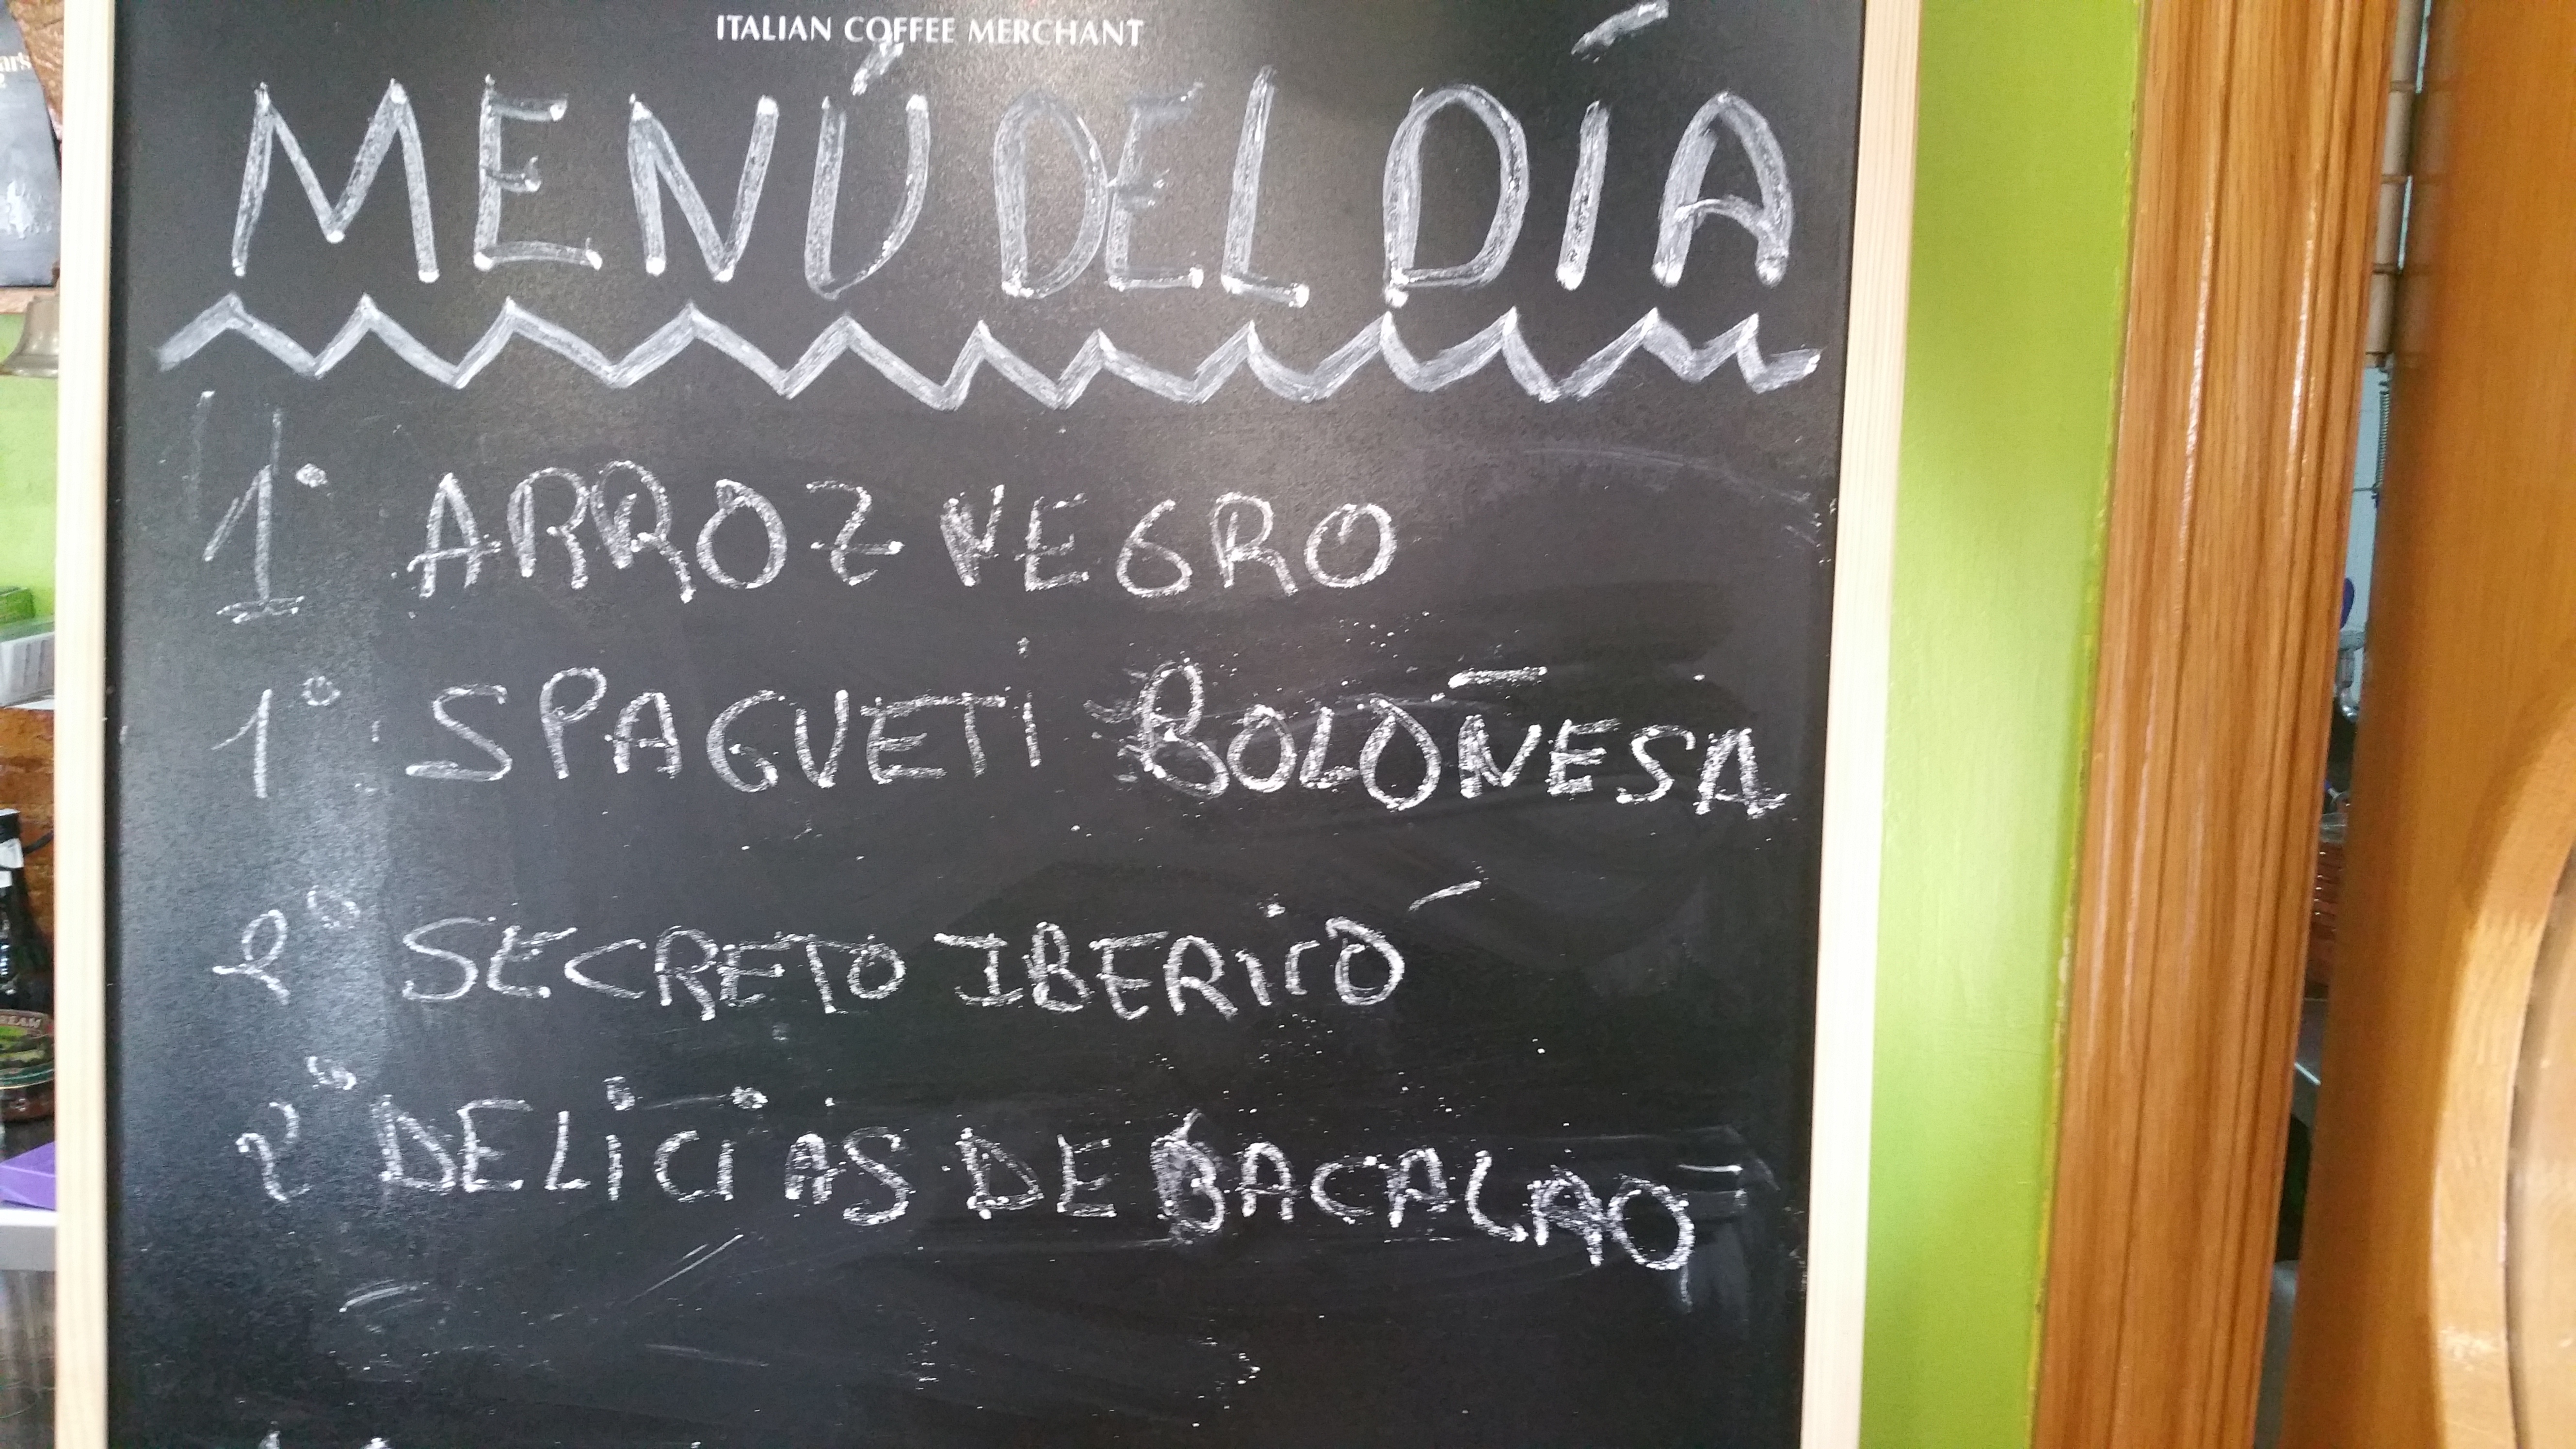 ITALIAN COFFEE MERCHANT
MENÚ DEL DÍA
1º ARROZ NEGRO
1º SPAGUETI BOLOÑESA
2º SECRETO IBERICO
2º DELICIAS DE BACALAO